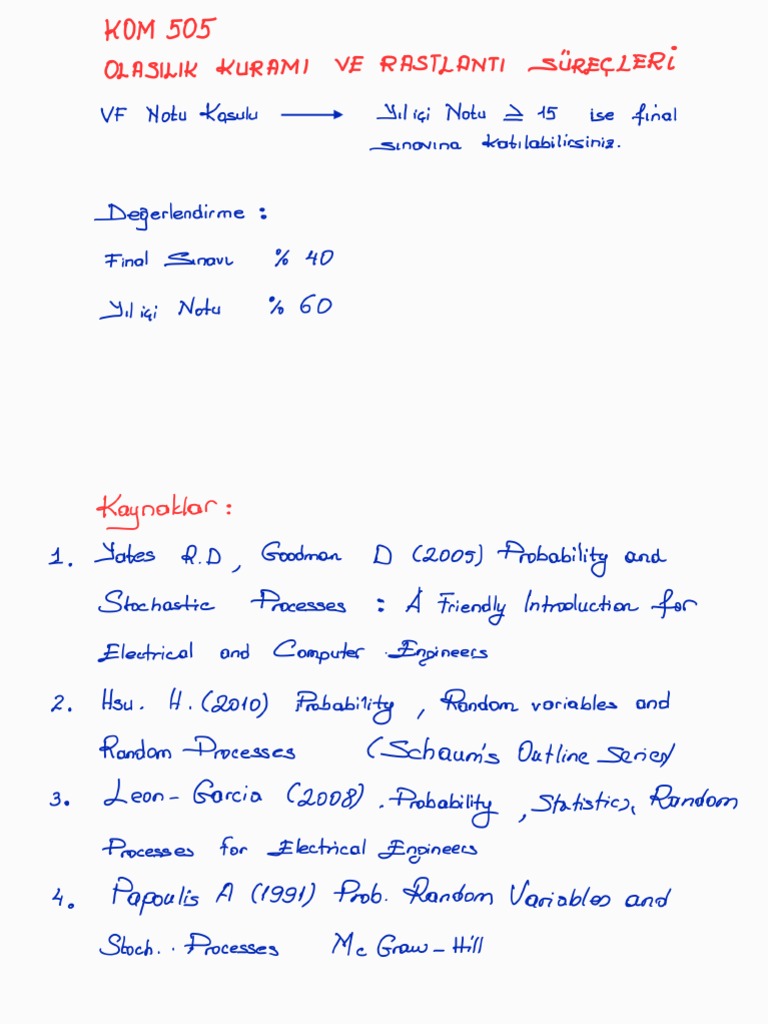 KOM 505
OLASILIK KURAMI VE RASTLANTI SÜREÇLERİ
VF Notu Koşulu → Yıl içi Notu ≥ 15 ise final
sınavına katılabilirsiniz.
Değerlendirme :
Final Sınavı % 40
Yıl içi Notu % 60
Kaynaklar :
1. Yates R.D, Goodman D (2005) Probability and
Stochastic Processes : A Friendly Introduction for
Electrical and Computer Engineers
2. Hsu. H. (2010) Probability, Random variables and
Random Processes (Schaum's Outline Series)
3. Leon-Garcia (2008). Probability, Statistics, Random
Processes for Electrical Engineers
4. Papoulis A (1991) Prob. Random Variables and
Stoch.. Processes Mc Graw-Hill